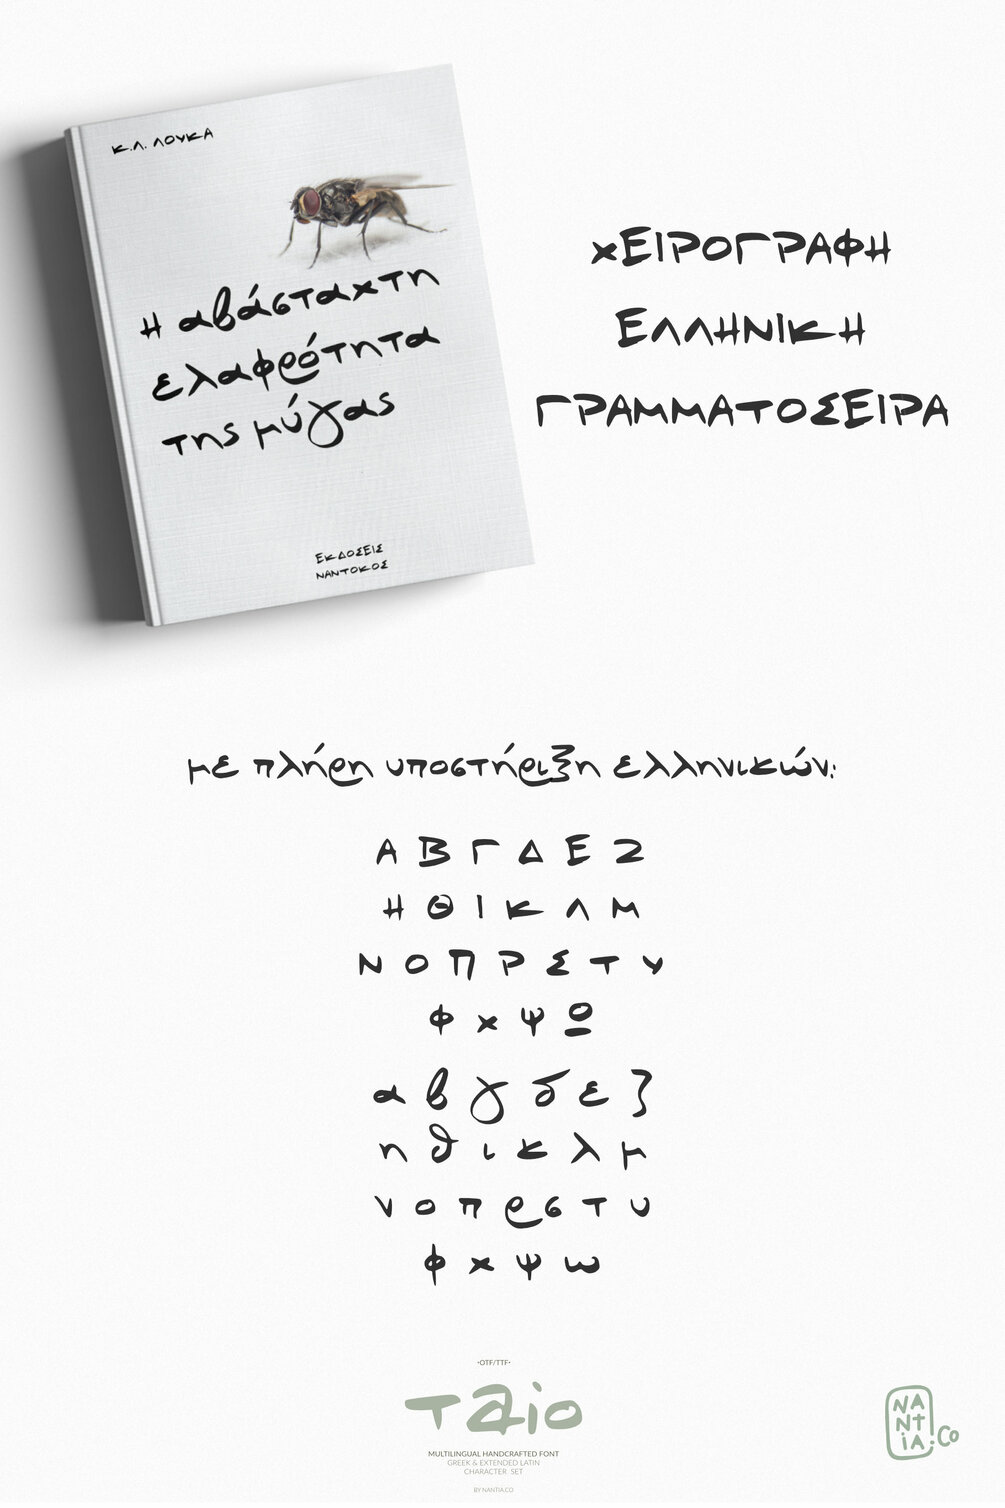 Κ.Λ. ΛΟΥΚΑ
Η αβάσταχτη
ελαφρότητα
της μύγας
ΕΚΔΟΣΕΙΣ
ΝΑΝΤΟΚΟΣ
ΧΕΙΡΟΓΡΑΦΗ
ΕΛΛΗΝΙΚΗ
ΓΡΑΜΜΑΤΟΣΕΙΡΑ
με πλήρη υποστήριξη ελληνικών:
Α Β Γ Δ Ε Ζ
Η Θ Ι Κ Λ Μ
Ν Ο Π Ρ Σ Τ Υ
Φ Χ Ψ Ω
α β γ δ ε ζ
η θ ι κ λ μ
ν ο π ρ σ τ υ
φ χ ψ ω
•OTF/TTF•
Taio
MULTILINGUAL HANDCRAFTED FONT
GREEK & EXTENDED LATIN
CHARACTER SET
BY NANTIA.CO
NA
NT
iA.Co